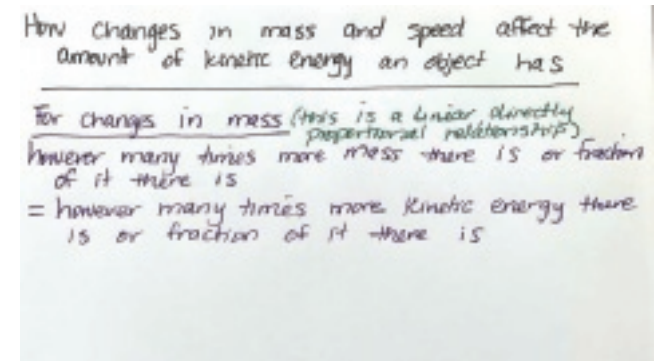 How changes in mass and speed affect the
amount of kinetic energy an object has
For changes in mass (this is a linear directly
proportional relationship)
however many times more mass there is or fraction
of it there is
= however many times more kinetic energy there
is or fraction of it there is